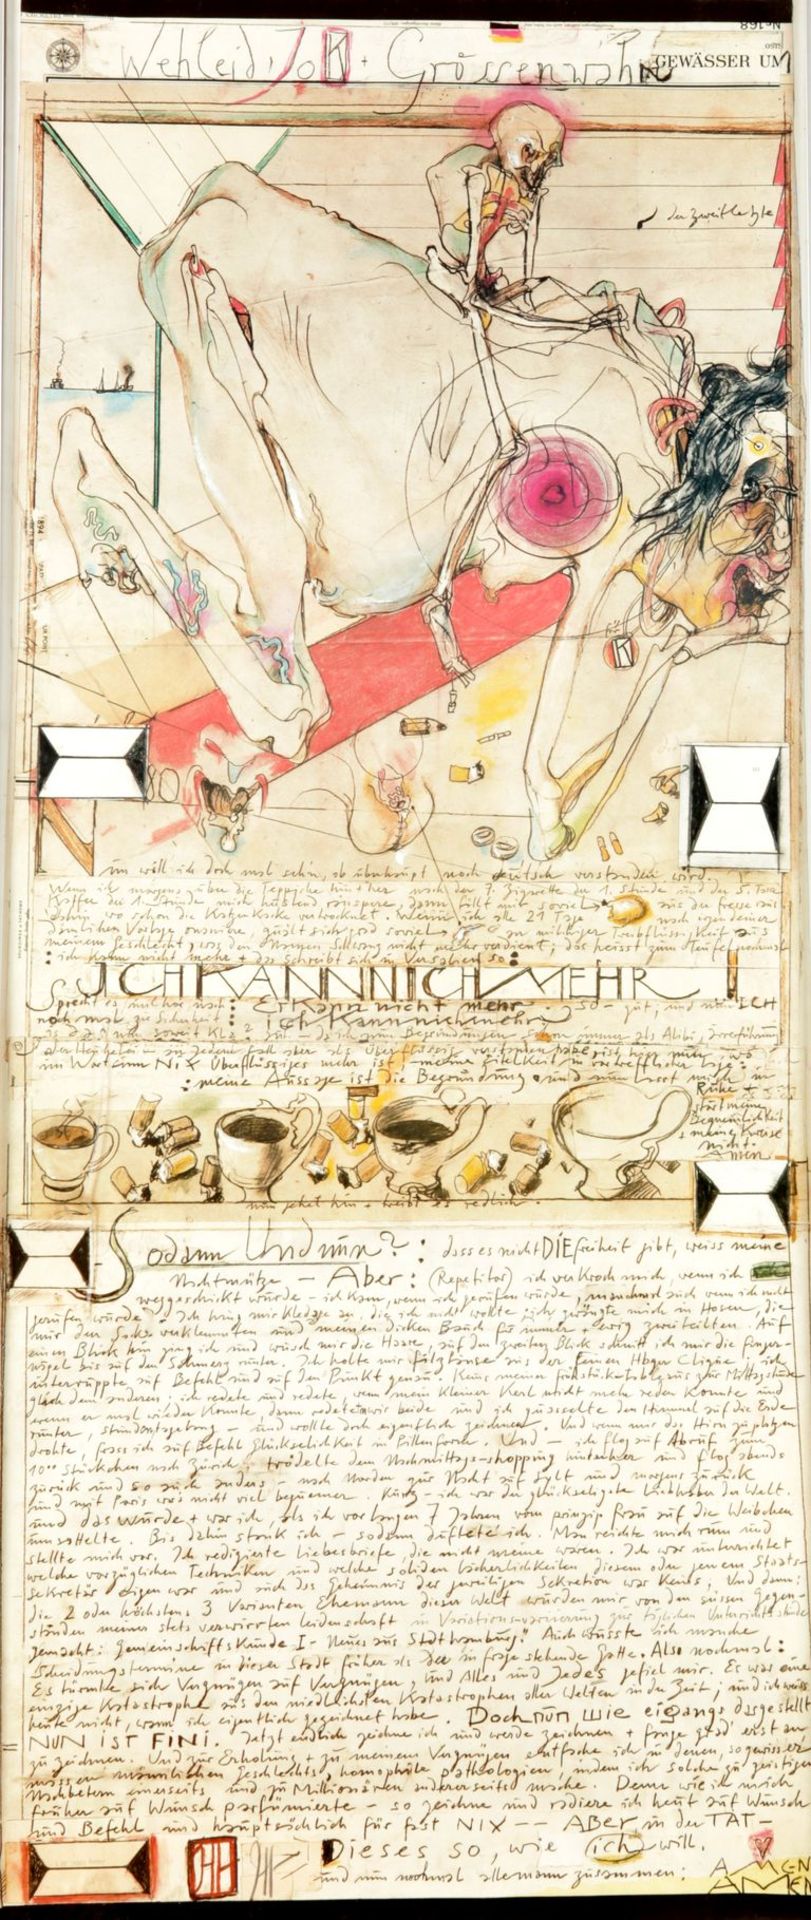 Nº 168
GEWÄSSER UM
Wehleid, Jok + Grössenwahn
der zweitletzte
1894
K
80
N
un will ich doch mal sehn, ob überhaupt noch deutsch verstanden wird.
Wenn ich morgens über die Teppiche hin + her nach der 7. Zigarette der 1. Stunde und der 5. Tasse
Kaffee der 1. Stunde mich hustend räuspere, dann fällt mir soviel aus der Fresse aus
dahin, wo schon die Katzenkacke vertrocknet. Wenn ich alle 21 Tage nach irgendeiner
dämlichen Vorlage onaniere, quillt sich grad soviel an milchiger Treibflüssigkeit aus
meinem Geschlecht, was den Namen nicht mehr verdient; das heisst zum Teufel
: ich kann nicht mehr + das schreibt sich in Versalien so :
ICHKANNNICHMEHR !
Sprecht es mal nach : Er kann nicht mehr. so - gut, und nun ICH
nochmal zu Sicherheit : ich kann nich mehr
ist das nun soweit klar? gut - da ich zum Begründungen schon immer als Alibi, Irreführung
oder Heuchelei - in jedem Fall aber als Überflüssig verstanden habe
im Wort NIX Überflüssiges mehr ist, meine Eitelkeit in vortrefflicher Lage :
: meine Aussage ist die Begründung und nun lasst mich in
Ruhe +
stört meine
Bequemlichkeit
+ meine Kreise
nicht.
Amen.
nun gehet hin + treibt es redlich.
Sodann Undnun? : dass es nicht DIE freiheit gibt, weiss meine
Nachtmütze - Aber : (Repetitor) ich verkroch mich, wenn ich
weggeschickt wurde - ich kam, wenn ich gerufen wurde, manchmal auch wenn ich nicht
gerufen wurde. Ich hing mir Kledage an, die ich nicht wollte; ich zwängte mich in Hosen, die
mir den Sack verklemmten und meinen dicken Bauch für immer + ewig zweiteilten. Auf
einen Blick hin ging ich und wusch mir die Haare, auf den zweiten Blick schnitt ich mir die Finger-
nägel bis auf den Schmerz runter. Ich holte mir Filzläuse aus der feinen Hbger Clique, ich
auf Befehl und auf den Punkt genau. Keins meiner zur Mittagsstunde
glich dem anderen; ich redete und redete, wenn mein kleiner Kerl nicht mehr reden konnte und
wenn er mal wieder konnte, dann redeten wir beide und ich quasselte den Himmel auf die Erde
runter, stundentagelang - und wollte doch eigentlich zeichnen. Und wenn mir das Hirn zu platzen
drohte, frass ich auf Befehl Glückseligkeit in Pillenform. Und - ich flog auf Abruf zum
10ºº Stückchen nach Zürich - trödelte dem Nachmittags-shopping hinterher und flog abends
zurück und so auch anders - nach Norden zur Nacht auf Sylt und morgens zurück
und mit Paris wars nicht viel bequemer. Kurz - ich war der glückseligste Liebhaber der Welt.
und das wurde + war ich, als ich vor langen 7 Jahren vom prinzip frau auf die Weibchen
umsattelte. Bis dahin stank ich - sodann duftete ich. Man reichte mich rum und
stellte mich vor. Ich redigierte Liebesbriefe, die nicht meine waren. Ich war unterrichtet
welche vorzüglichen Techniken und welche soliden Lächerlichkeiten diesem oder jenem Staats-
sekretär eigen war und auch das Geheimnis der jeweiligen Sekretion war keins; Und dann:
die 2 oder höchstens 3 Varianten Ehemann dieser Welt wurden mir von den süssen Gegen-
ständen meiner stets verwirrten leidenschaft in zur täglichen Unterrichtsstunde
gemacht: Gemeinschaftskunde I - Neues aus Stadt hamburg. Auch wusste ich manche
Scheidungstermine in dieser Stadt früher als der in frage stehende Gatte. Also nochmal :
Es türmte sich Vergnügen auf Vergnügen, und Alles und Jedes gefiel mir. Es war eine
einzige Katastrophe aus den niedlichsten Katastrophen aller Welten in der Zeit; und ich weiss
heute nicht, wann ich eigentlich gezeichnet habe. Doch nun wie eigangs dargestellt
NUN IST FINI. Jetzt endlich zeichne ich und werde zeichnen + fange grad' erst an
zu zeichnen. Und zur Erholung + zu meinem Vergnügen entfache ich in denen, so gewisser
massen männlichen Geschlechts, homophile pathologien, indem ich solche zu geistigen
Nachbetern einerseits und zu Millionären andererseits mache. Denn wie ich mich
früher auf Wunsch parfümierte - so zeichne und radiere ich heut auf Wunsch
und Befehl und hauptsächlich für fast NIX -- ABER in der TAT -
Dieses so, wie ich will.
und nun nochmal allemann zusammen: AMEN
AMEN
JH